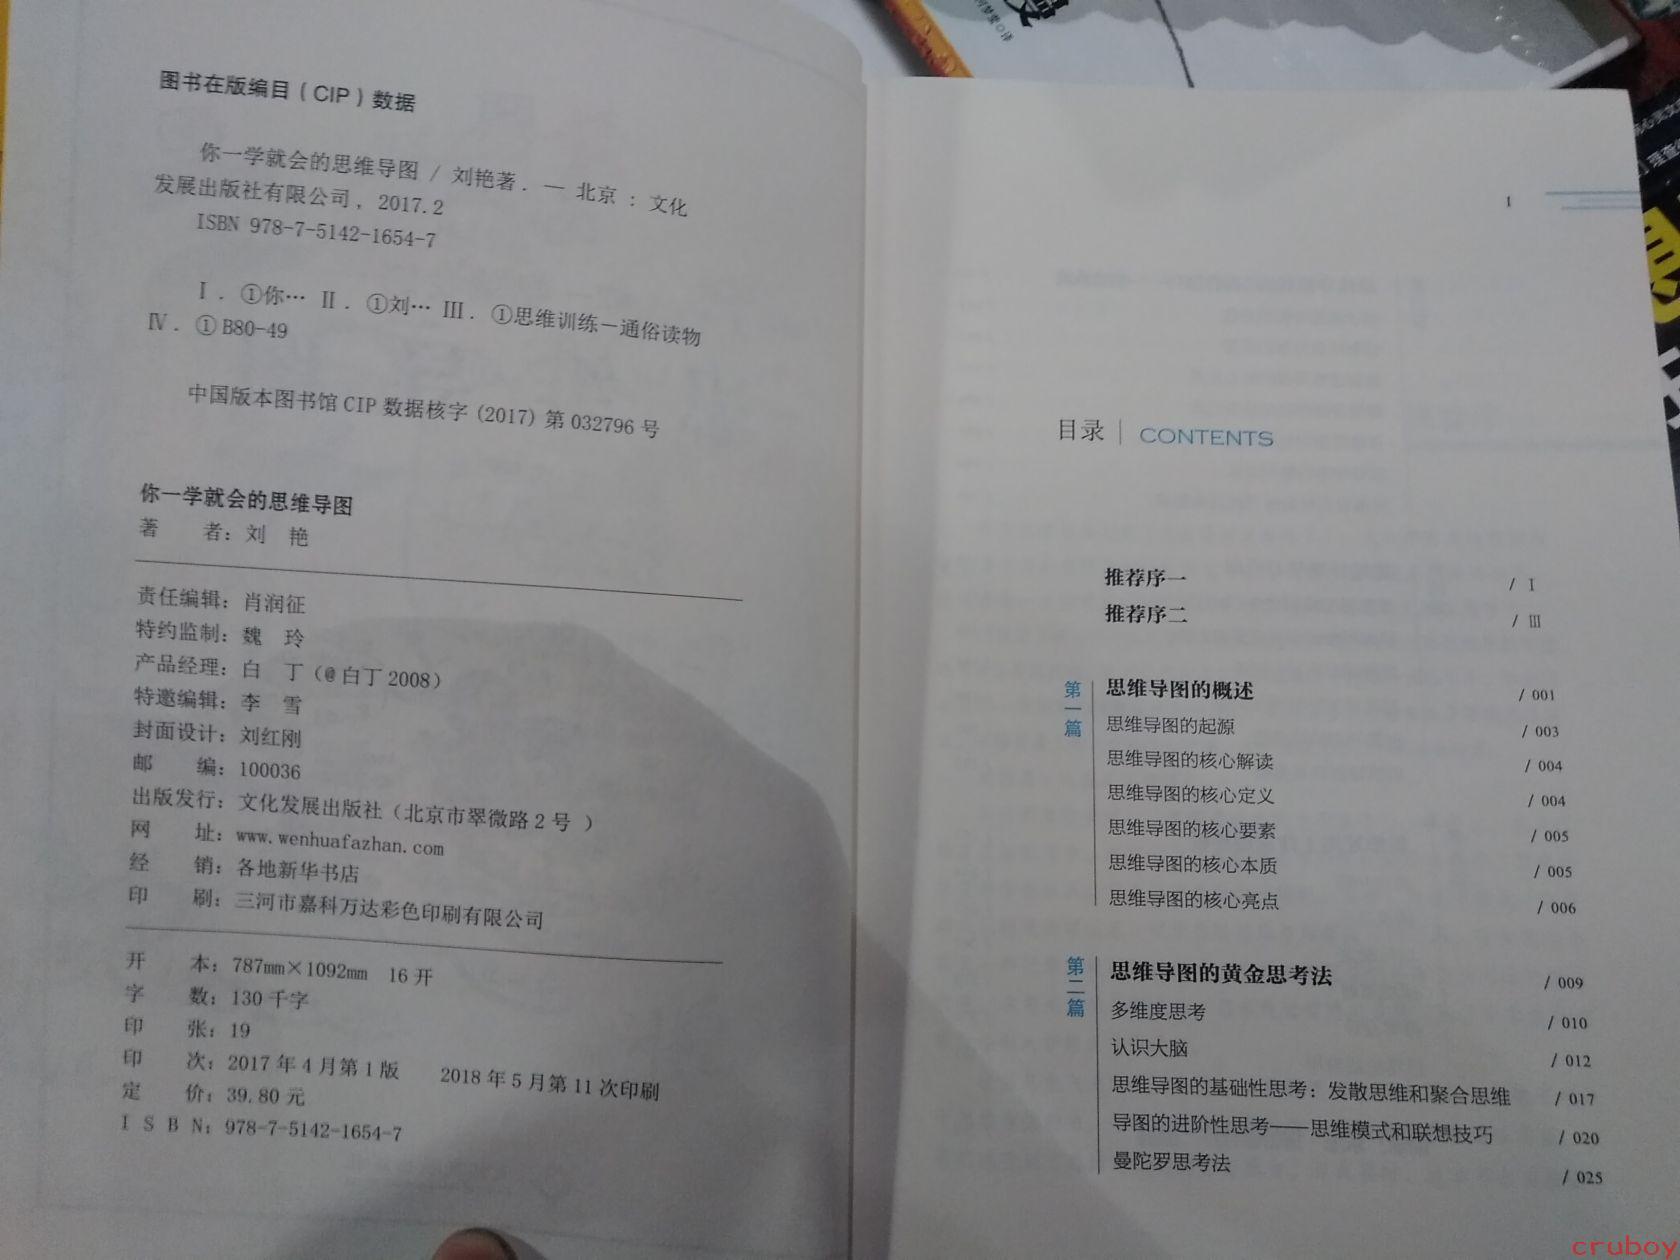 图书在版编目（CIP）数据
你一学就会的思维导图 / 刘艳著. — 北京 : 文化
发展出版社有限公司, 2017.2
ISBN 978-7-5142-1654-7
Ⅰ. ①你… Ⅱ. ①刘… Ⅲ. ①思维训练－通俗读物
Ⅳ. ①B80-49
中国版本图书馆CIP数据核字(2017)第032796号
你一学就会的思维导图
著 者：刘 艳
责任编辑：肖润征
特约监制：魏 玲
产品经理：白 丁（@白丁2008）
特邀编辑：李 雪
封面设计：刘红刚
邮 编：100036
出版发行：文化发展出版社（北京市翠微路2号 ）
网 址：www.wenhuafazhan.com
经 销：各地新华书店
印 刷：三河市嘉科万达彩色印刷有限公司
开 本：787mm×1092mm 16开
字 数：130千字
印 张：19
印 次：2017年4月第1版 2018年5月第11次印刷
定 价：39.80元
I S B N：978-7-5142-1654-7
1
目录 CONTENTS
推荐序一 / Ⅰ
推荐序二 / Ⅲ
第一篇
思维导图的概述 / 001
思维导图的起源 / 003
思维导图的核心解读 / 004
思维导图的核心定义 / 004
思维导图的核心要素 / 005
思维导图的核心本质 / 005
思维导图的核心亮点 / 006
第二篇
思维导图的黄金思考法 / 009
多维度思考 / 010
认识大脑 / 012
思维导图的基础性思考：发散思维和聚合思维 / 017
导图的进阶性思考——思维模式和联想技巧 / 020
曼陀罗思考法 / 025
cruboy